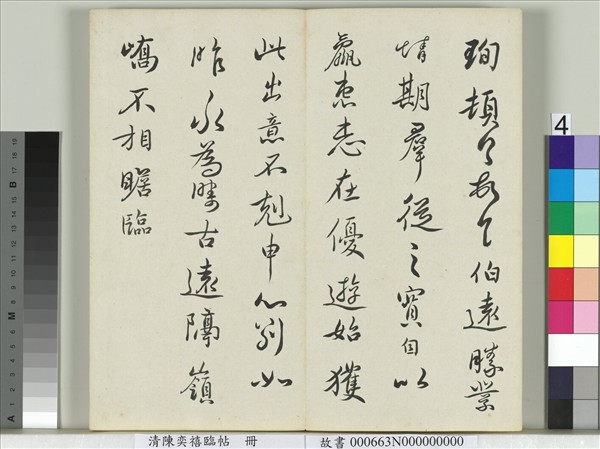 珣頓首頓首伯遠勝業
情期群從之寶自以
羸患志在優遊始獲
此出意不剋申分別如
昨永為疇古遠隔嶺
嶠不相瞻臨
4
清陳奕禧臨帖 冊
故書 000663N000000000